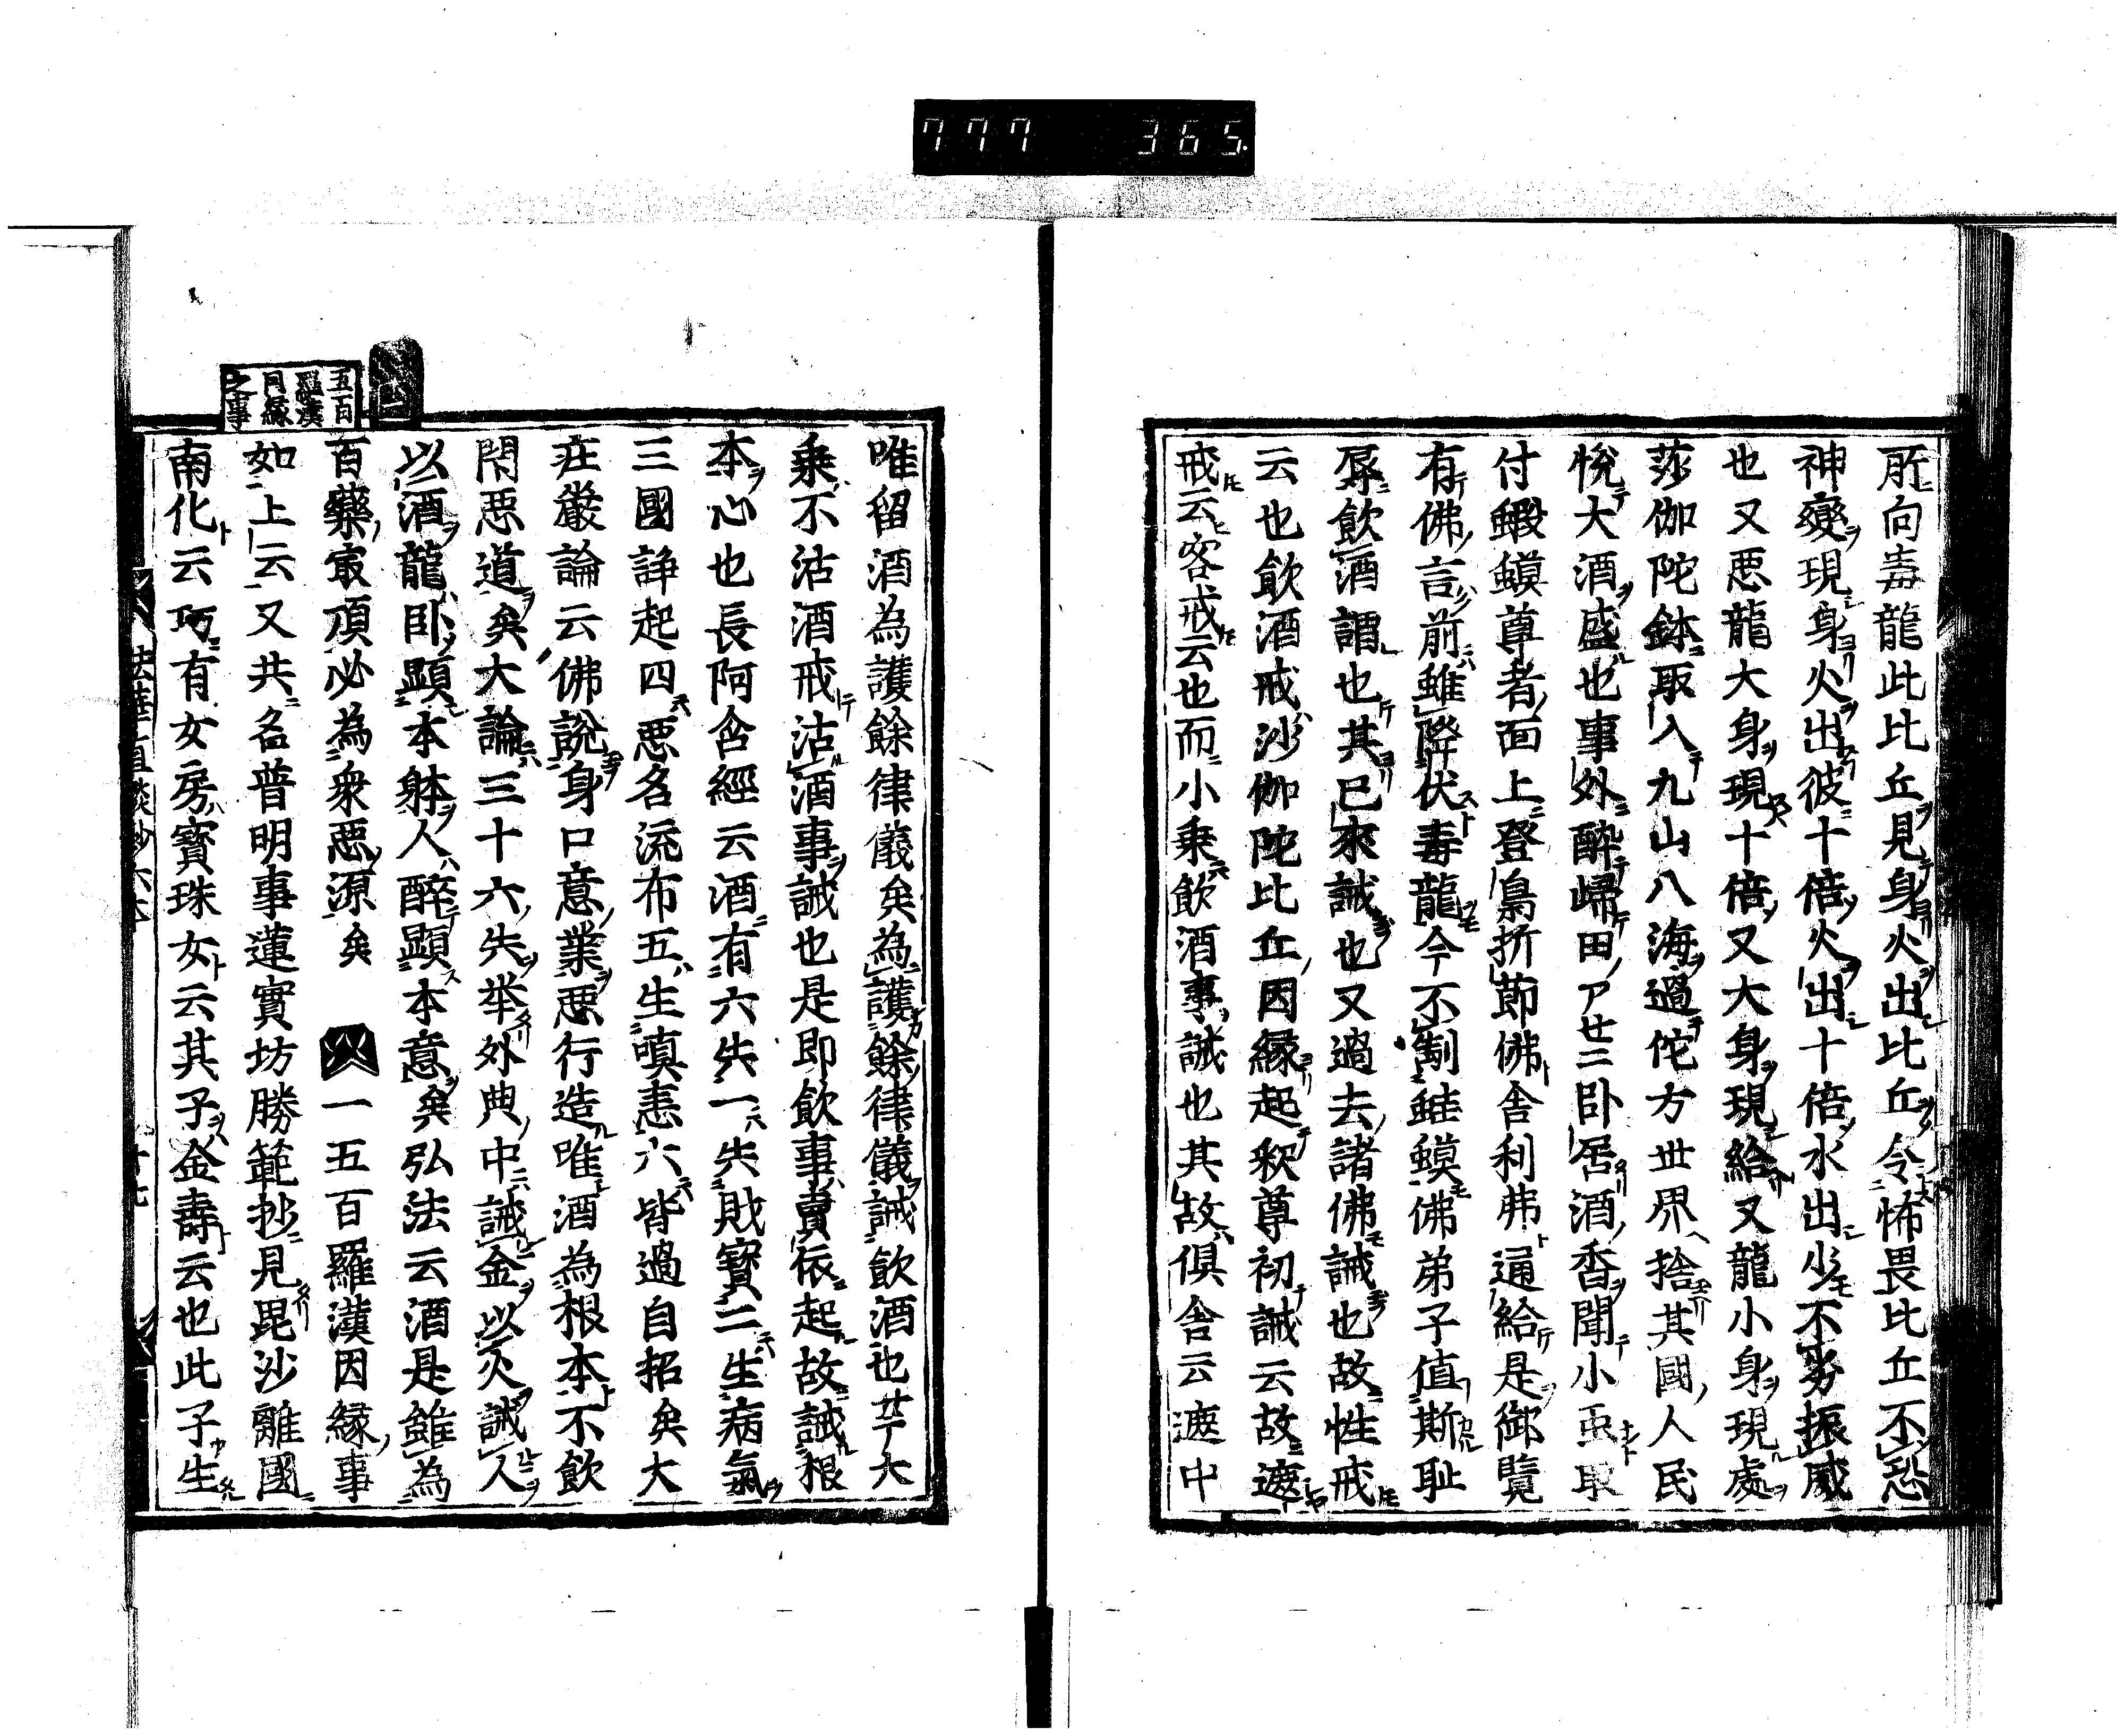 777 365
所向毒龍此比丘見身火出比丘令怖畏比丘不恐
神變現身火出彼十倍火出十倍水出少不劣振威
也又悪龍大身現十倍又大身現給又龍小身現處
莎伽陀鉢取入九山八海過佗方世界捨其國人民
悅大酒盛也事外酔歸田ノア廿二卧居酒香聞小亟取
付蝦蟆尊者面上登鳥折節佛舍利弗通給是御覽
有佛言前雖降伏毒龍今不制蛙蟆佛弟子値斯耻
辱飲酒謂也其已來誡也又過去諸佛誡也故性戒
云也飲酒戒沙伽陀比丘因縁起釈尊初誡云故遮
戒云客戒云也而小乗飲酒事誡也其故俱舍云遮中
唯留酒為護餘律儀矣為護餘律儀誡飲酒也廿大
乗不沽酒戒沽酒事誡也是即飲事賣依起故誡根
本心也長阿含經云酒有六失一失財寶二生病氣
三國諍起四悪名流布五生嗔恚六皆過自招矣大
荘嚴論云佛說身口意業悪行造唯酒為根本不飲
閇悪道矣大論三十六失挙外典中誡金以火誡人
以酒龍卧顕本躰人酔顕本意矣弘法云酒是雖為
百藥最頂必為衆悪源矣 一五百羅漢因縁事
如上云又共名普明事蓮實坊勝範抄見毘沙離國
南化云巧有女房寳珠女云其子金壽云也此子生
五百
羅漢
因縁
之事
法華直談鈔六本 十七